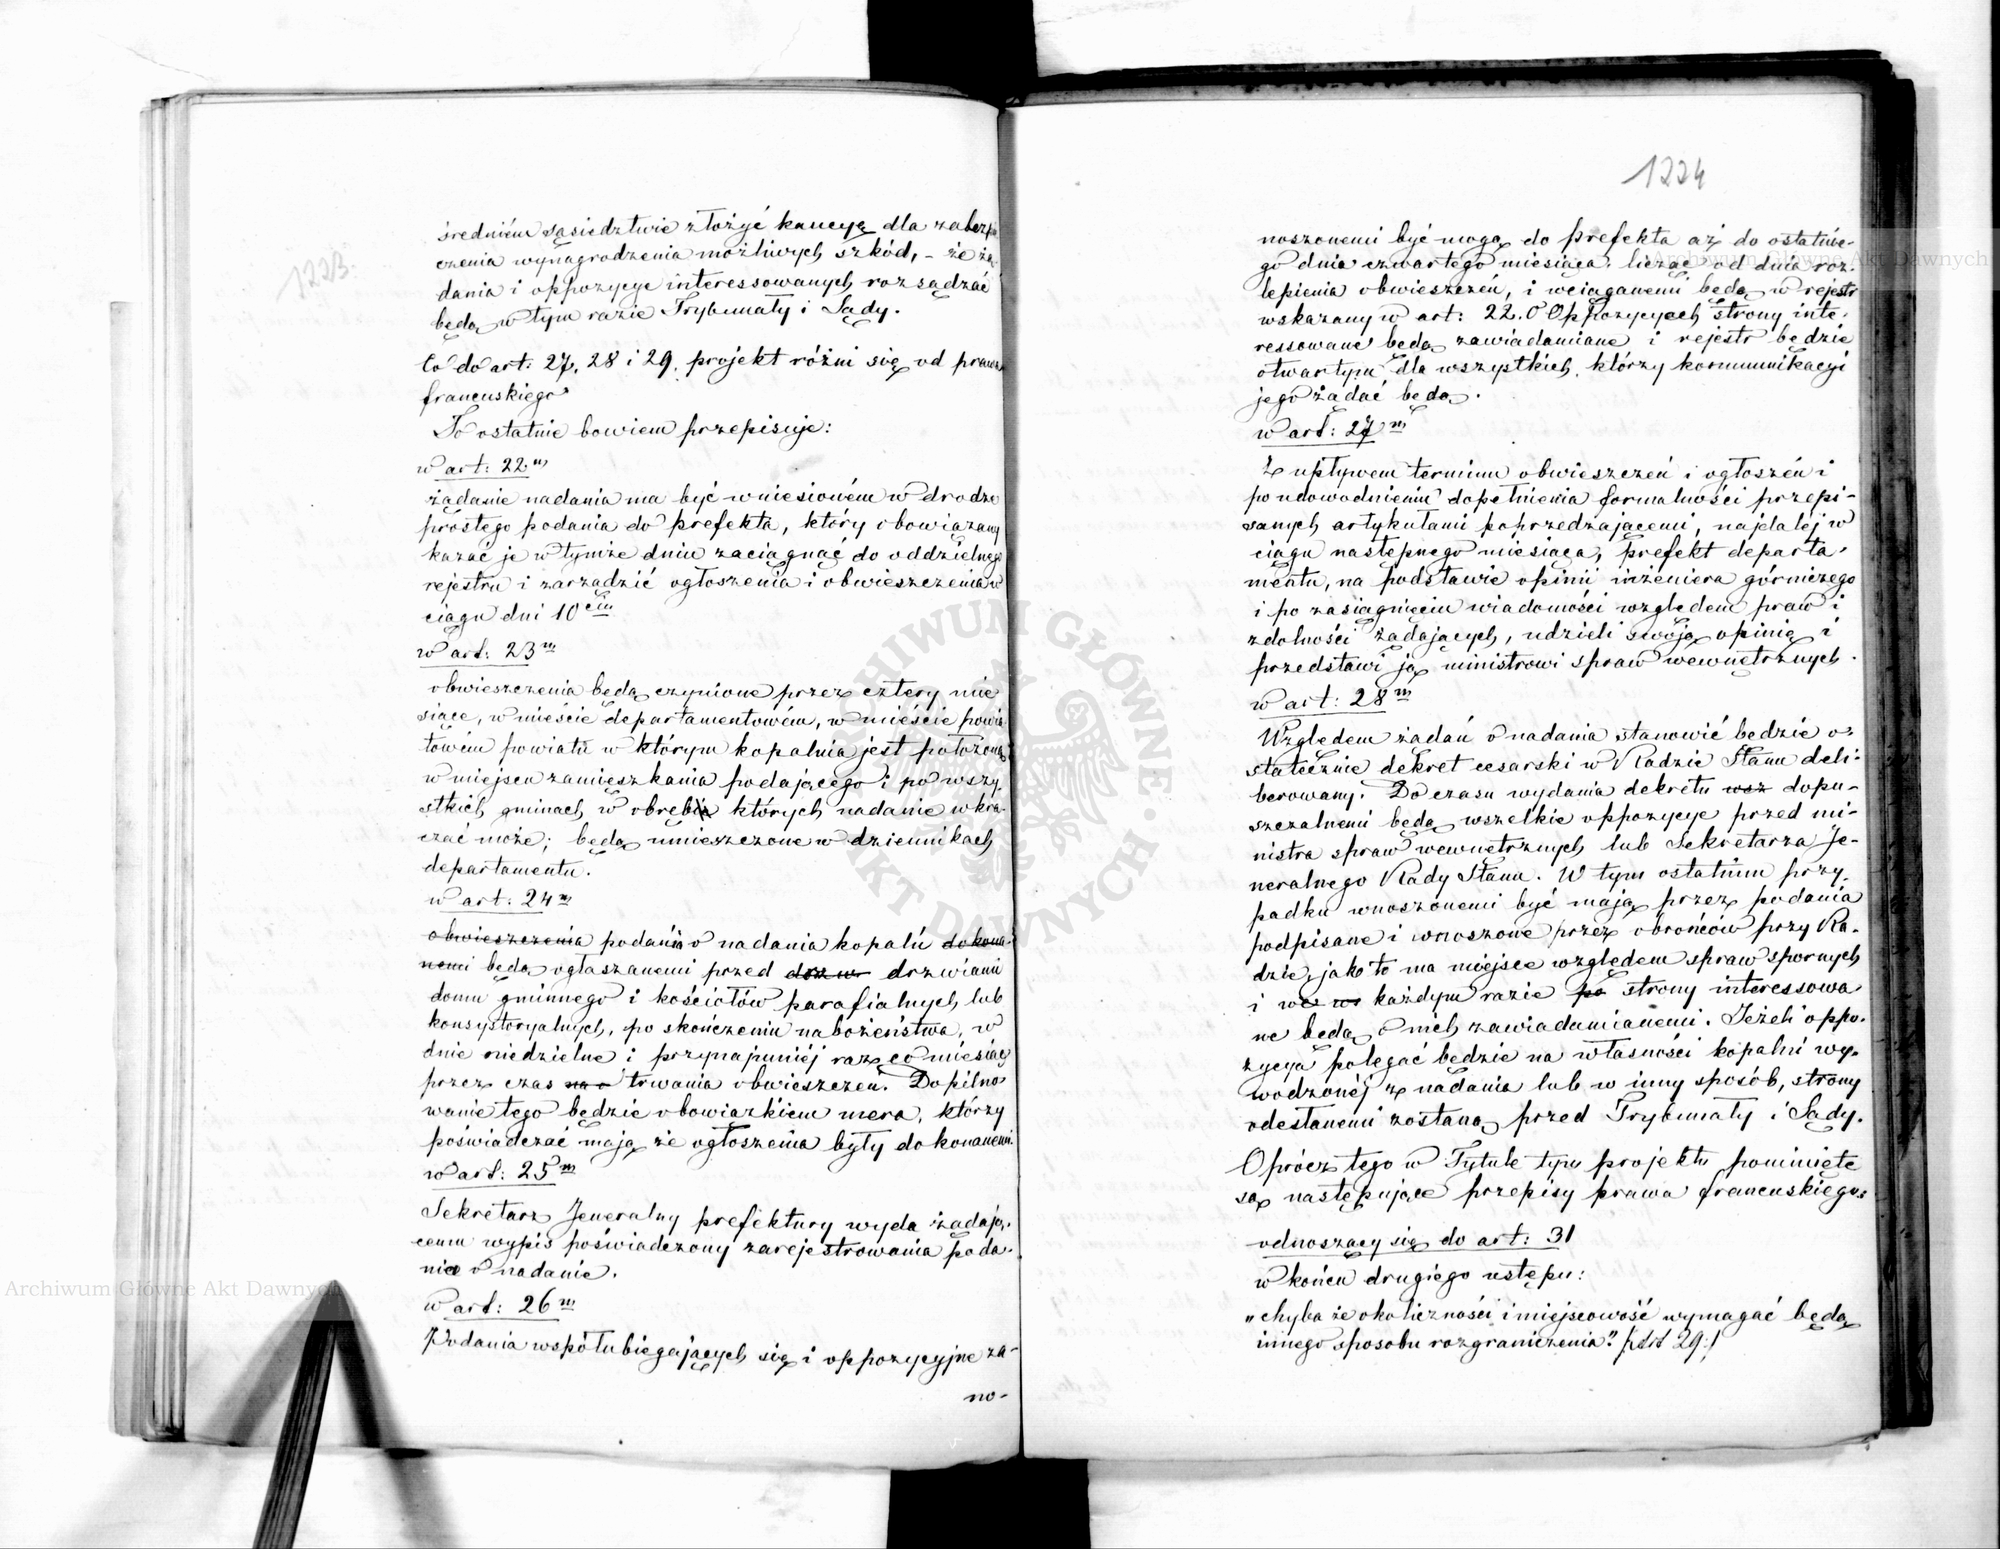 1223.
średniém sąsiedztwie złożyć kaucyę dla zabezpie
czenia wynagrodzenia możliwych szkód, – że żą
dania i oppozycye interessowanych rozsądzać
będą w tym razie Trybunały i Sądy.
Co do art: 27, 28 i 29. projekt różni się od prawa
francuskiego
To ostatnie bowiem przepisuje:
w art: 22 m
żądanie nadania ma być wniesioném w drodze
prostego podania do prefekta, który obowiązany
kazać je w tymże dniu zaciągnąć do oddzielnego
rejestru i zarządzić ogłoszenia i obwieszczenia w
ciągu dni 10ciu
w art: 23 m
obwieszczenia będą czynione przez cztery mie
siące, w mieście departamentowém, w mieście powia
towém powiatu w którym kopalnia jest położona,
w miejscu zamieszkania podającego i po wszy
stkich gminach w obrębie których nadanie wkra-
czać może; będą umieszczone w dziennikach
departamentu.
w art: 24 m
obwieszczenia podania o nadania kopalń dokona-
nemi będą ogłaszanemi przed drzwiami
domu gminnego i kościołów parafialnych lub
konsystoryalnych, po skończeniu nabożeństwa, w
dnie niedzielne i przynajmniéj raz co miesiąc
przez czas trwania obwieszczeń. Dopilno
wanie tego będzie obowiązkiem mera, którzy
poświadczać mają że ogłoszenia były dokonanemi.
w art: 25 m
Sekretarz Jeneralny prefektury wyda żądają-
cemu wypis poświadczony zarejestrowania poda-
nia o nadanie.
w art: 26 m
Podania współubiegających się i oppozycyjne za-
no-
1224
noszonemi być mogą do prefekta aż do ostatnie-
go dnia czwartego miesiąca, licząc od dnia roz-
lepienia obwieszczeń, i wciąganemi będą w rejestr
wskazany w art: 22. O Oppozycyach strony inte-
ressowane będą zawiadamiane i rejestr będzie
otwartym dla wszystkich, którzy kommunikacyi
jego żądać będą.
w art: 27 m
Z upływem terminu obwieszczeń i ogłoszeń i
po udowodnieniu dopełnienia formalności przepi-
sanych artykułami poprzedzającemi, najdaléj w
ciągu następnego miesiąca, prefekt departa-
mentu, na podstawie opinii inżeniera górniczego
i po zasiągnięciu wiadomości względem praw i
zdolności żądających, udzieli swoją opinię i
przedstawi ją ministrowi spraw wewnętrznych.
w art: 28 m
Względem żądań o nadania stanowić będzie o-
statecznie dekret cesarski w Radzie Stanu deli-
berowany. Do czasu wydania dekretu wsz dopu-
szczalnemi będą wszelkie oppozycye przed mi-
nistra spraw wewnętrznych lub Sekretarza Je-
neralnego Rady Stanu. W tym ostatnim przy-
padku wnoszonemi być mają przez podania
podpisane i wnoszone przez obrońców przy Ra-
dzie, jak to ma miejsce względem spraw spornych
i we w każdym razie po strony interessowa
ne będą o nich zawiadamianemi. Jeżeli oppo-
zycya polegać będzie na własności kopalni wy-
wodzonéj z nadania lub w inny sposób, strony
odesłanemi zostaną przed Trybunały i Sądy.
Oprócz tego w Tytule tym projektu pominięte
są następujące przepisy prawa francuskiego:
odnoszący się do art: 31
w końcu drugiego ustępu:
„chyba że okoliczności i miejscowość wymagać będą
innego sposobu rozgraniczenia" /: Art 29 :/
Archiwum Główne Akt Dawnych
Archiwum Główne Akt Dawnych
ARCHIWUM GŁÓWNE AKT DAWNYCH